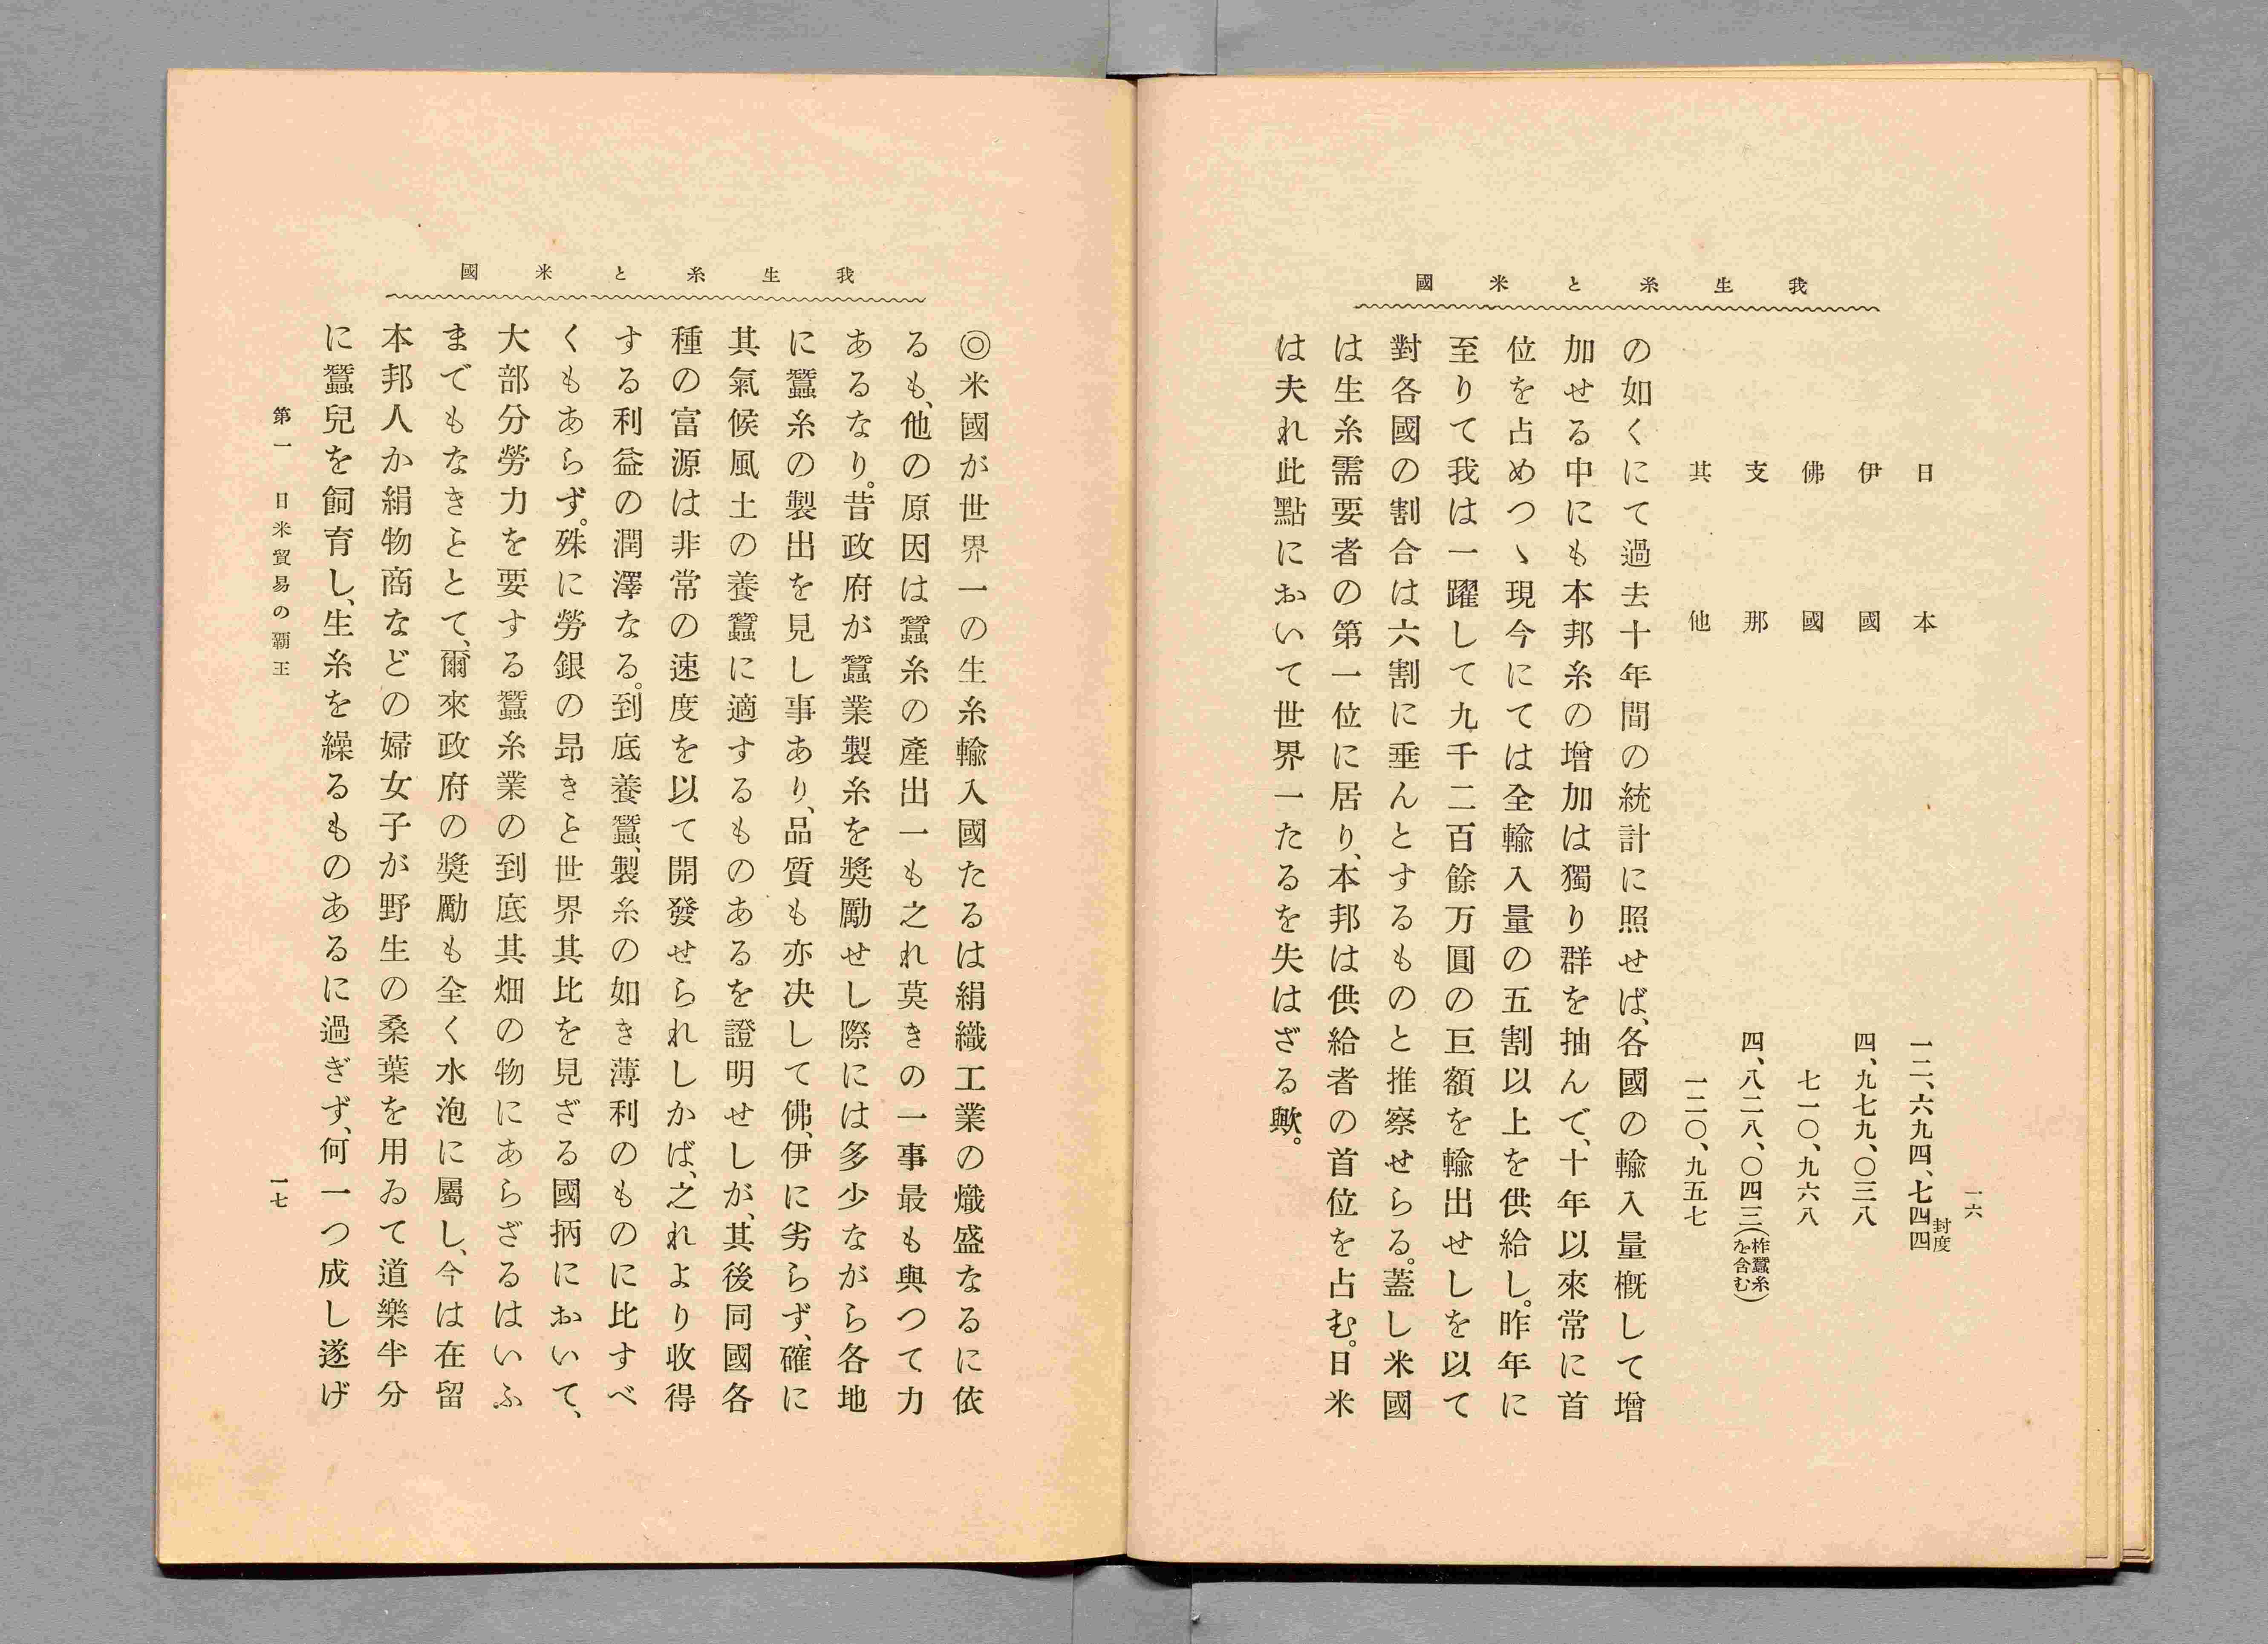 我生糸と米國
一六
日本 一二、六九四、七四四封度
伊國 四、九七九、〇三八
佛國 七一〇、九六八
支那 四、八二八、〇四三(柞蠶糸を含む)
其他 一二〇、九五七
の如くにて過去十年間の統計に照せば、各國の輸入量槪して增
加せる中にも本邦糸の增加は獨り群を抽んで、十年以來常に首
位を占めつゝ現今にては全輸入量の五割以上を供給し。昨年に
至りて我は一躍して九千二百餘万圓の巨額を輸出せしを以て
對各國の割合は六割に垂んとするものと推察せらる。蓋し米國
は生糸需要者の第一位に居り、本邦は供給者の首位を占む。日米
は夫れ此點において世界一たるを失はざる歟。
我生糸と米國
◎米國が世界一の生糸輸入國たるは絹織工業の熾盛なるに依
るも、他の原因は蠶糸の產出一も之れ莫きの一事最も與つて力
あるなり。昔政府が蠶業製糸を獎勵せし際には多少ながら各地
に蠶糸の製出を見し事あり、品質も亦决して佛、伊に劣らず、確に
其氣候風土の養蠶に適するものあるを證明せしが、其後同國各
種の富源は非常の速度を以て開發せられしかば、之れより收得
する利益の潤澤なる。到底養蠶、製糸の如き薄利のものに比すべ
くもあらず。殊に勞銀の昂きこと世界其比を見ざる國柄において、
大部分勞力を要する蠶糸業の到底其畑の物にあらざるはいふ
までもなきことて、爾來政府の獎勵も全く水泡に屬し、今は在留
本邦人か絹物商などの婦女子が野生の桑葉を用ゐて道樂半分
に蠶兒を飼育し、生糸を繰るものあるに過ぎず、何一つ成し遂げ
第一 日米貿易の覇王
一七